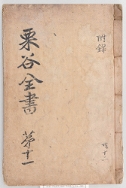 附錄
栗谷全書 第十一